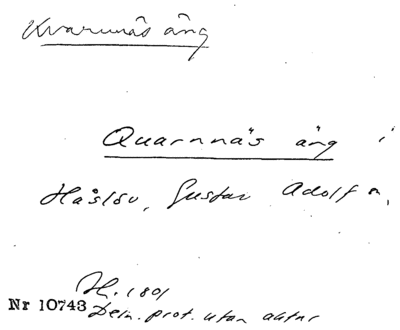 Kvarnnäs äng
Quarnnäs äng i
Håslöv, Gustav Adolf n,
H. 1801
Nr 10743 Dem. prot. utan aktnr